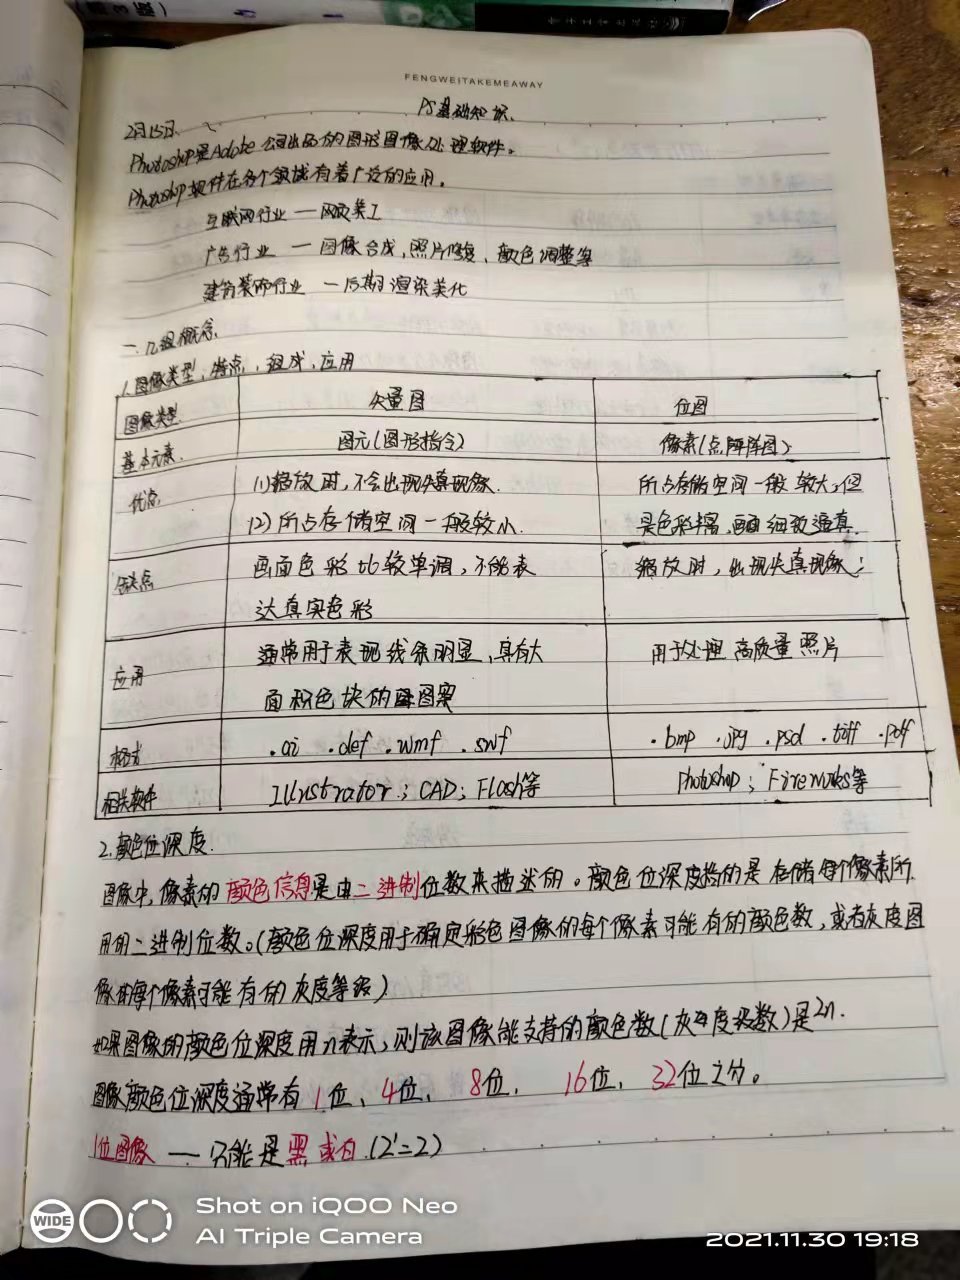 FENGWEITAKEMEAWAY
PS基础知识.
2月15日.
Photoshop是Adobe公司出品的图形图像处理软件。
Photoshop软件在各个领域有着广泛的应用。
互联网行业 — 网页美工
广告行业 — 图像合成,照片修复、颜色调整等
建筑装饰行业 — 后期渲染美化
一.几组概念.
1.图像类型,特点,组成,应用
图像类型 矢量图 位图
基本元素. 图元(图形指令) 像素(点阵图)
优点 (1)缩放时,不会出现失真现象. 所占存储空间一般较大,但
(2)所占存储空间一般较小. 是色彩丰富,画面细致逼真.
缺点 画面色彩比较单调,不能表 缩放时,出现失真现象;
达真实色彩
应用 通常用于表现线条明显,具有大 用于处理高质量照片
面积色块的图案
格式 .ai .def .wmf .swf .bmp .jpg .psd .tiff .pdf
相关软件 Illustrator; CAD; Flash等 Photoshop; Fireworks等
2.颜色位深度.
图像中,像素的颜色信息是由二进制位数来描述的。颜色位深度指的是存储每个像素所
用的二进制位数。(颜色位深度用于确定彩色图像的每个像素可能有的颜色数,或者灰度图
像的每个像素可能有的灰度等级)
如果图像的颜色位深度用n表示,则该图像能支持的颜色数(灰度级数)是2n.
图像颜色位深度通常有1位、4位、8位、16位、32位之分。
1位图像 — 只能是黑或白.(2¹=2)
WIDE
Shot on iQOO Neo
AI Triple Camera
2021.11.30 19:18